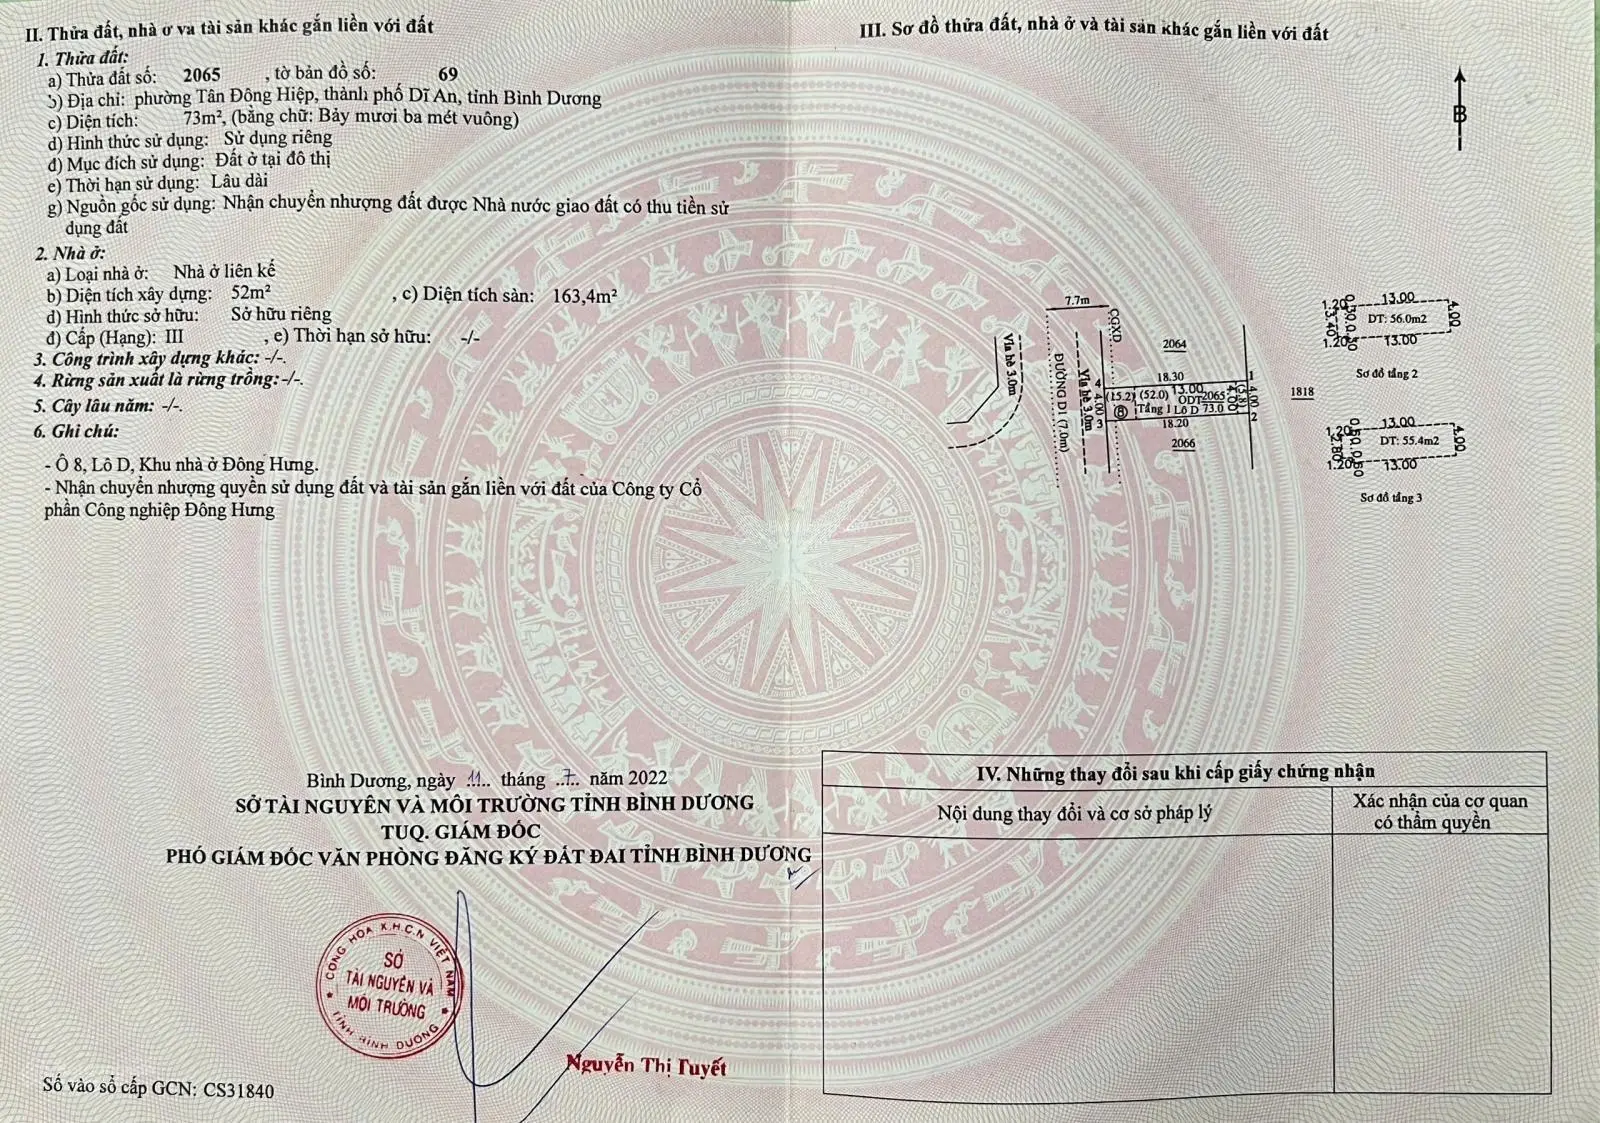 II. Thửa đất, nhà ở và tài sản khác gắn liền với đất
1. Thửa đất:
a) Thửa đất số: 2065 , tờ bản đồ số: 69
b) Địa chỉ: phường Tân Đông Hiệp, thành phố Dĩ An, tỉnh Bình Dương
c) Diện tích: 73m², (bằng chữ: Bảy mươi ba mét vuông)
d) Hình thức sử dụng: Sử dụng riêng
đ) Mục đích sử dụng: Đất ở tại đô thị
e) Thời hạn sử dụng: Lâu dài
g) Nguồn gốc sử dụng: Nhận chuyển nhượng đất được Nhà nước giao đất có thu tiền sử
dụng đất
2. Nhà ở:
a) Loại nhà ở: Nhà ở liên kế
b) Diện tích xây dựng: 52m² , c) Diện tích sàn: 163,4m²
d) Hình thức sở hữu: Sở hữu riêng
đ) Cấp (Hạng): III , e) Thời hạn sở hữu: -/-
3. Công trình xây dựng khác: -/-.
4. Rừng sản xuất là rừng trồng:-/-.
5. Cây lâu năm: -/-.
6. Ghi chú:
- Ô 8, Lô D, Khu nhà ở Đông Hưng.
- Nhận chuyển nhượng quyền sử dụng đất và tài sản gắn liền với đất của Công ty Cổ
phần Công nghiệp Đông Hưng
Bình Dương, ngày 11 tháng 7 năm 2022
SỞ TÀI NGUYÊN VÀ MÔI TRƯỜNG TỈNH BÌNH DƯƠNG
TUQ. GIÁM ĐỐC
PHÓ GIÁM ĐỐC VĂN PHÒNG ĐĂNG KÝ ĐẤT ĐAI TỈNH BÌNH DƯƠNG
CỘNG HÒA X.H.C.N VIỆT NAM
SỞ
TÀI NGUYÊN VÀ
MÔI TRƯỜNG
TỈNH BÌNH DƯƠNG
Nguyễn Thị Tuyết
Số vào sổ cấp GCN: CS31840
III. Sơ đồ thửa đất, nhà ở và tài sản khác gắn liền với đất
B
7.7m
CGXD
Vỉa hè 3.0m
ĐƯỜNG D1 (7.0m)
Vỉa hè 3.0m
2064
18.30
1
4
(15.2) (52.0) 13.00
ODT 2065
4.00
4.00
(5.8)
4.00
8
Tầng 1 Lô D 73.0
3
18.20
2
2066
1818
1.20 0.50 13.00
3.40
DT: 56.0m2
4.00
1.20 0.50 13.00
Sơ đồ tầng 2
1.20 0.50 13.00
2.80
DT: 55.4m2
4.00
1.20 0.50 13.00
Sơ đồ tầng 3
IV. Những thay đổi sau khi cấp giấy chứng nhận
Nội dung thay đổi và cơ sở pháp lý
Xác nhận của cơ quan
có thẩm quyền